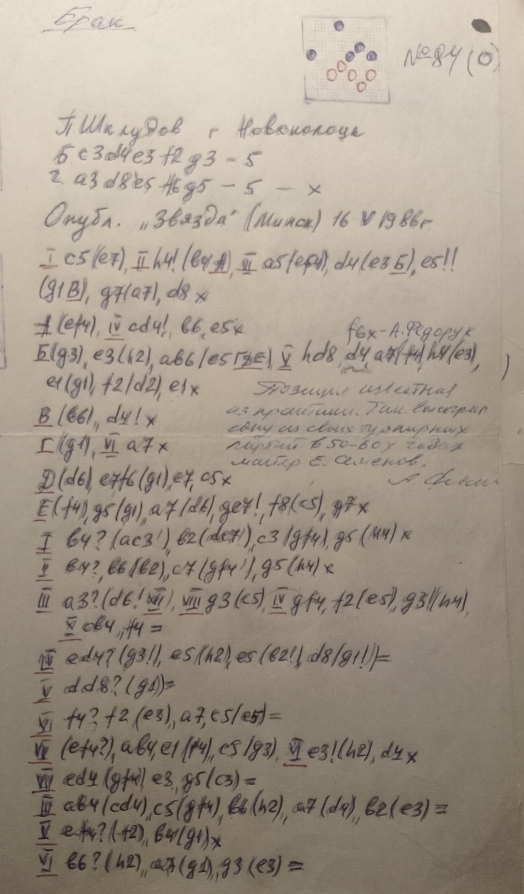 Брак
№ 84 (0)
П Шклудов г Новополоцк
Б c3 d4 e3 f2 g3 - 5
Ч. a3 d8 e5 f6 g5 - 5 - x
Опубл. "Звязда" (Минск) 16 V 1986г
I c5(e7), II h4! (b4 A), III a5(ef4), d4(e3 Б), e5!!
(g1 В), g7(a7), d8 x
А (ef4), IV cd4!, b6, e5x
f6x - А. Федорук
Б(g3), e3(h2), ab6(e5 ГДЕ), V hd8 d4 a7(f4) h4(e3),
e1(g1), f2(d2), e1x
Позиция известная
из практики. Так выиграл
одну из своих турнирных
партий в 50-60х годах
мастер Е. Семенов.
В (b6), d4! x
Г (g1), VI a7 x
Д (d6), e7 f6(g1), e7, c5x
Е (f4), g5(g1), a7(d6), ge7!, f8(c5), g7x
I b4? (ac3!), b2(de7!), c3(gf4), g5(h4) x
II b4?, b6(b2), c7(gf4!), g5(h4) x
III a3? (d6! VII), VIII g3(c5), IV gf4, f2(e5), g3!(h4),
V cb4, f4 =
IV ed4? (g3!), e5(h2), e5(b2!), d8(g1!) =
V dd8? (g1) =
VI f4? f2(e3), a7, c5(e5) =
VII (ef4?), ab4, e1(f4), c5(g3), VI e3!(h2), d4 x
VIII ed4(gf4) e3, g5(c3) =
III ab4(cd4), c5(gf4), b6(h2), a7(d4), b2(e3) =
V ef4? (f2), b4(g1) x
VI b6? (h2), a7(g1), g3(e3) =